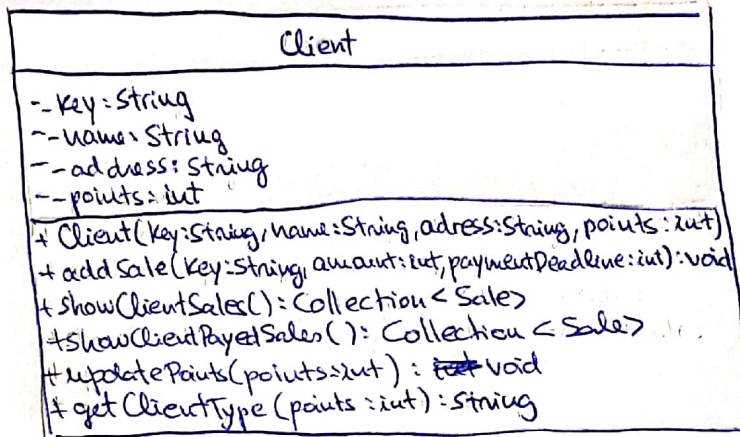 Client
-_key:String
--name:String
--address:String
--points:int
+ Client(key:String,name:String,adress:String,points:int)
+ addSale(key:String,amount:int,paymentDeadline:int):void
+ showClientSales():Collection<Sale>
+showClientPayedSales():Collection<Sale>
+updatePoints(points:int): void
+ getClientType(points:int):String